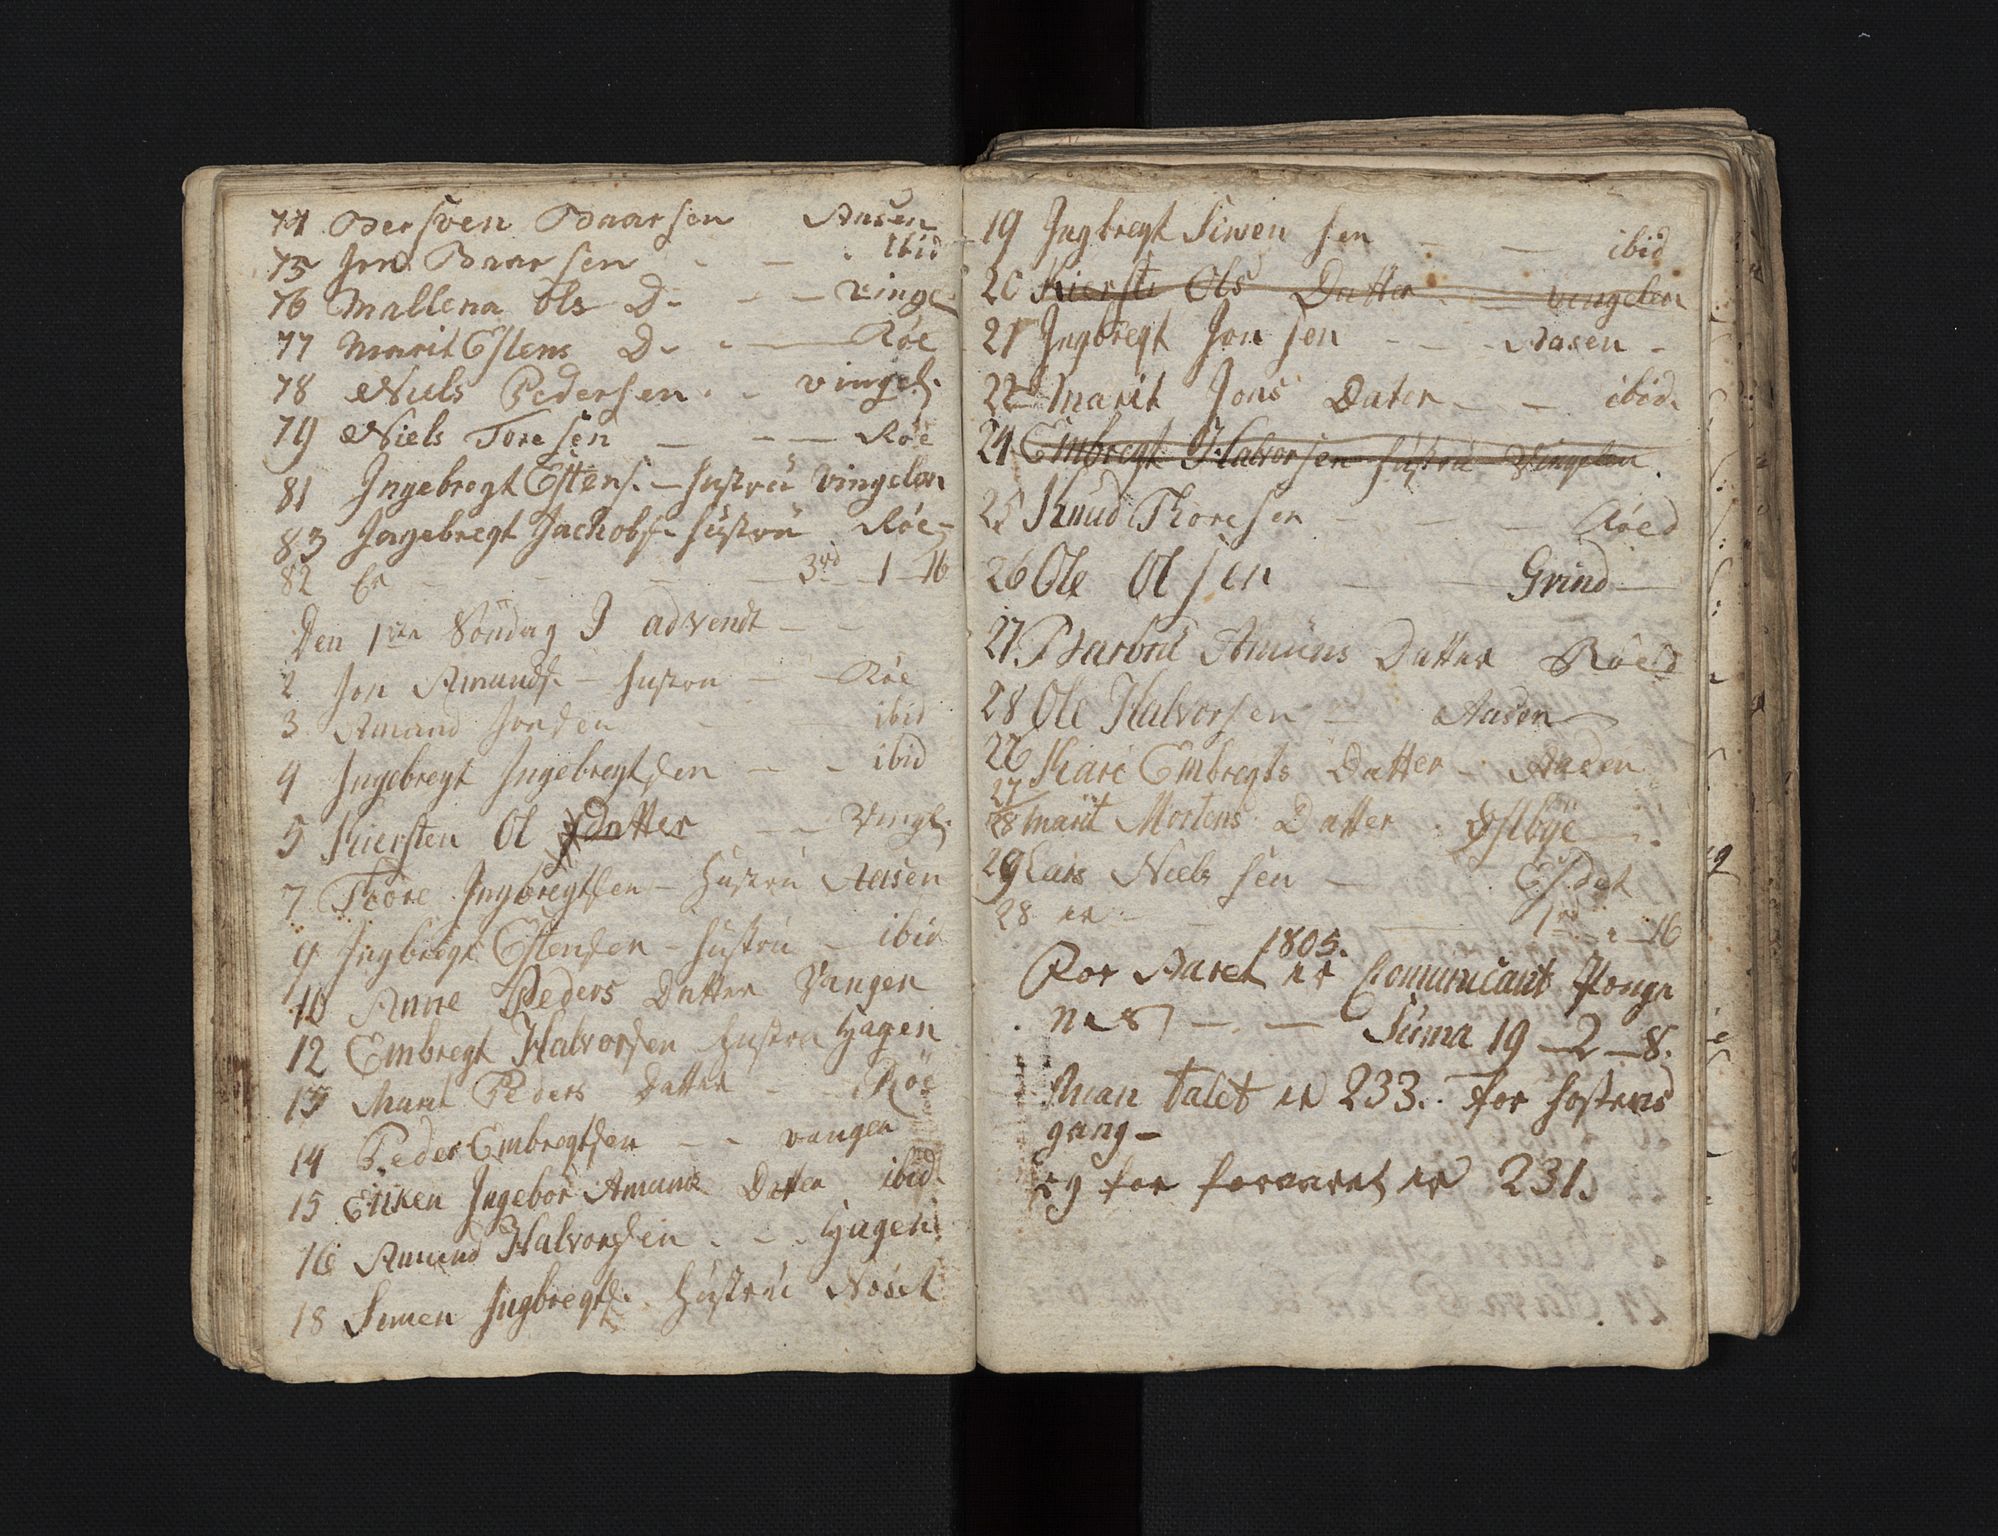 74 Bersven Baarsen Aasen
75 Jon Baarsen - - - ibid
76 Mallena Ols D. - - - Vingel
77 Marit Estens D. - - Røe
78 Niels Pedersen - - vingel.
79 Niels Toresen - - - Røe
81 Ingebregt Estens. - hustrú vingelen
83 Ingebregt Jachobs. hústrú Røe -
82 Er - - - - 3rd 1 - 16
Den 1ste Søndag I advendt - -
2 Jon Amunds. - hustru - Røe
3 Amund Jonsen - - ibid
4 Ingebregt Ingebregtsen - - ibid
5 Kiersten Ol sdatter - - Vingl.
7 Thore Ingbregtsen - Hustrú Aasen
9 Ingbregt Estensen - hustrú - ibid
10 Anne Peders Datter Vangen
12 Embregt Halvorsen Hustru Hagen
13 Marit Peders Datter - Røe
14 Peder Embregtsen - - vangen
15 Enken Ingebor Amunds Datter ibid
16 Amund Halvorsen - - Hagen
18 Simen Ingbregts. Hústrú Noset
19 Ingbregt Simen sen - - ibid
20 Kiersti Ols Datter - vingelen
21 Ingbregt Jon sen - - - Aasen -
22 Marit Jons Dater - - ibid.
24 Embregt Halvorsen hustru Vingelen.
25 Knud Thoresen - - - Røed
26 Ole Ol sen - - Grind -
27 Barbrú Amúns Datter Røed
28 Ole Halvorsen - Aasen
26 Kare Embregts Datter - Aasen
27
28 Marit Mortens Datter. Østbye -
29 Lars Niels sen - Esdet
28 er - - - 1rd - " - 16
1805.
For Aaret er Comunicant Penge
ne 87 - - Súma 19 - 2 - 8.
Man talet er 233. for høstens
gang -
og for foraaret er 231.